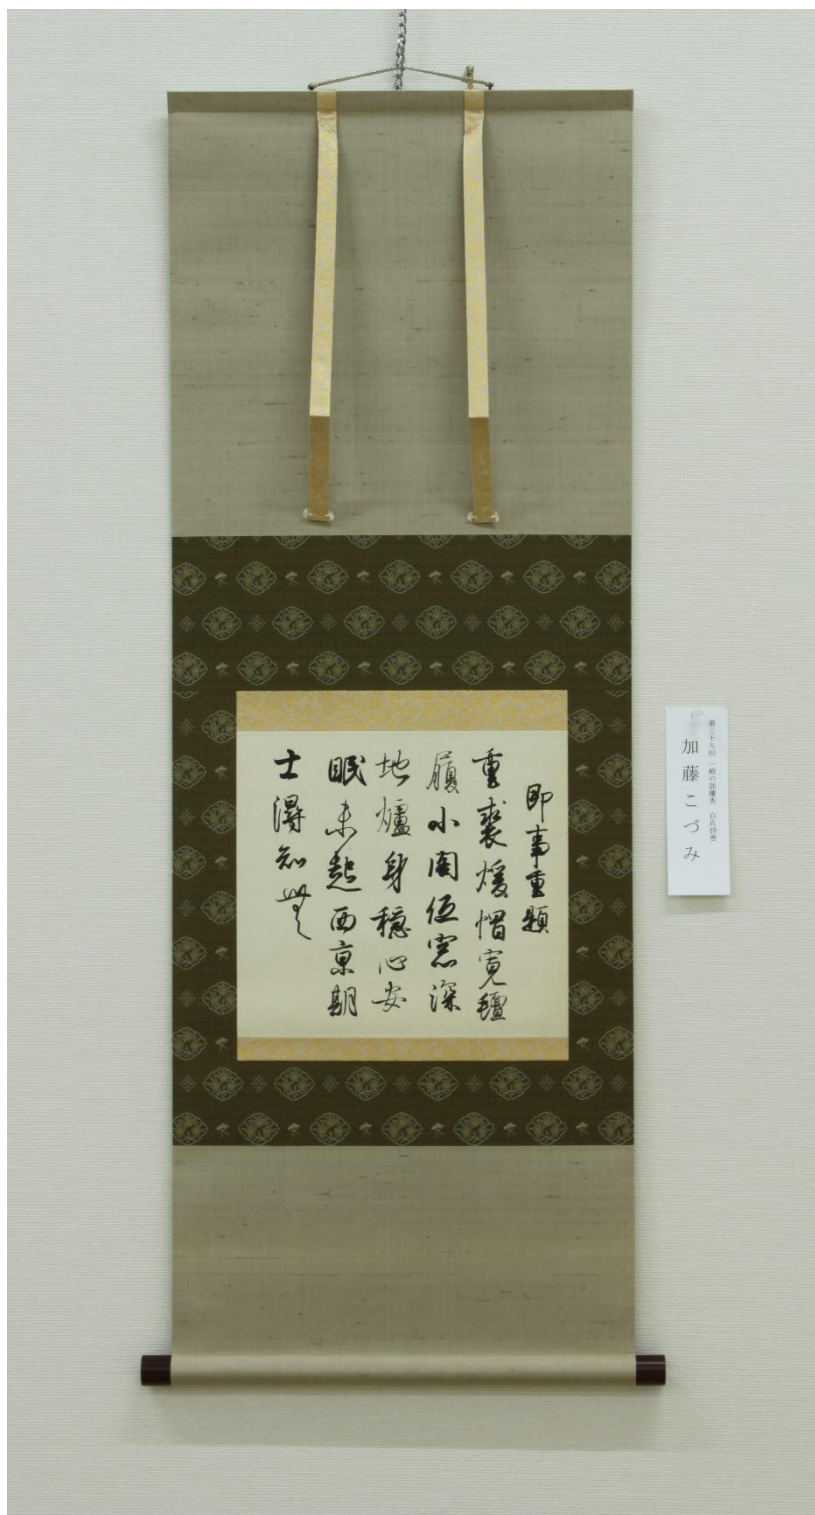 即事重題
重裘煖帽寛氈
履小閣低窓深
地爐身穩心安
眠未起西京朝
士得知無
第三十九回 一般の部優秀 白氏詩巻
加藤こづみ